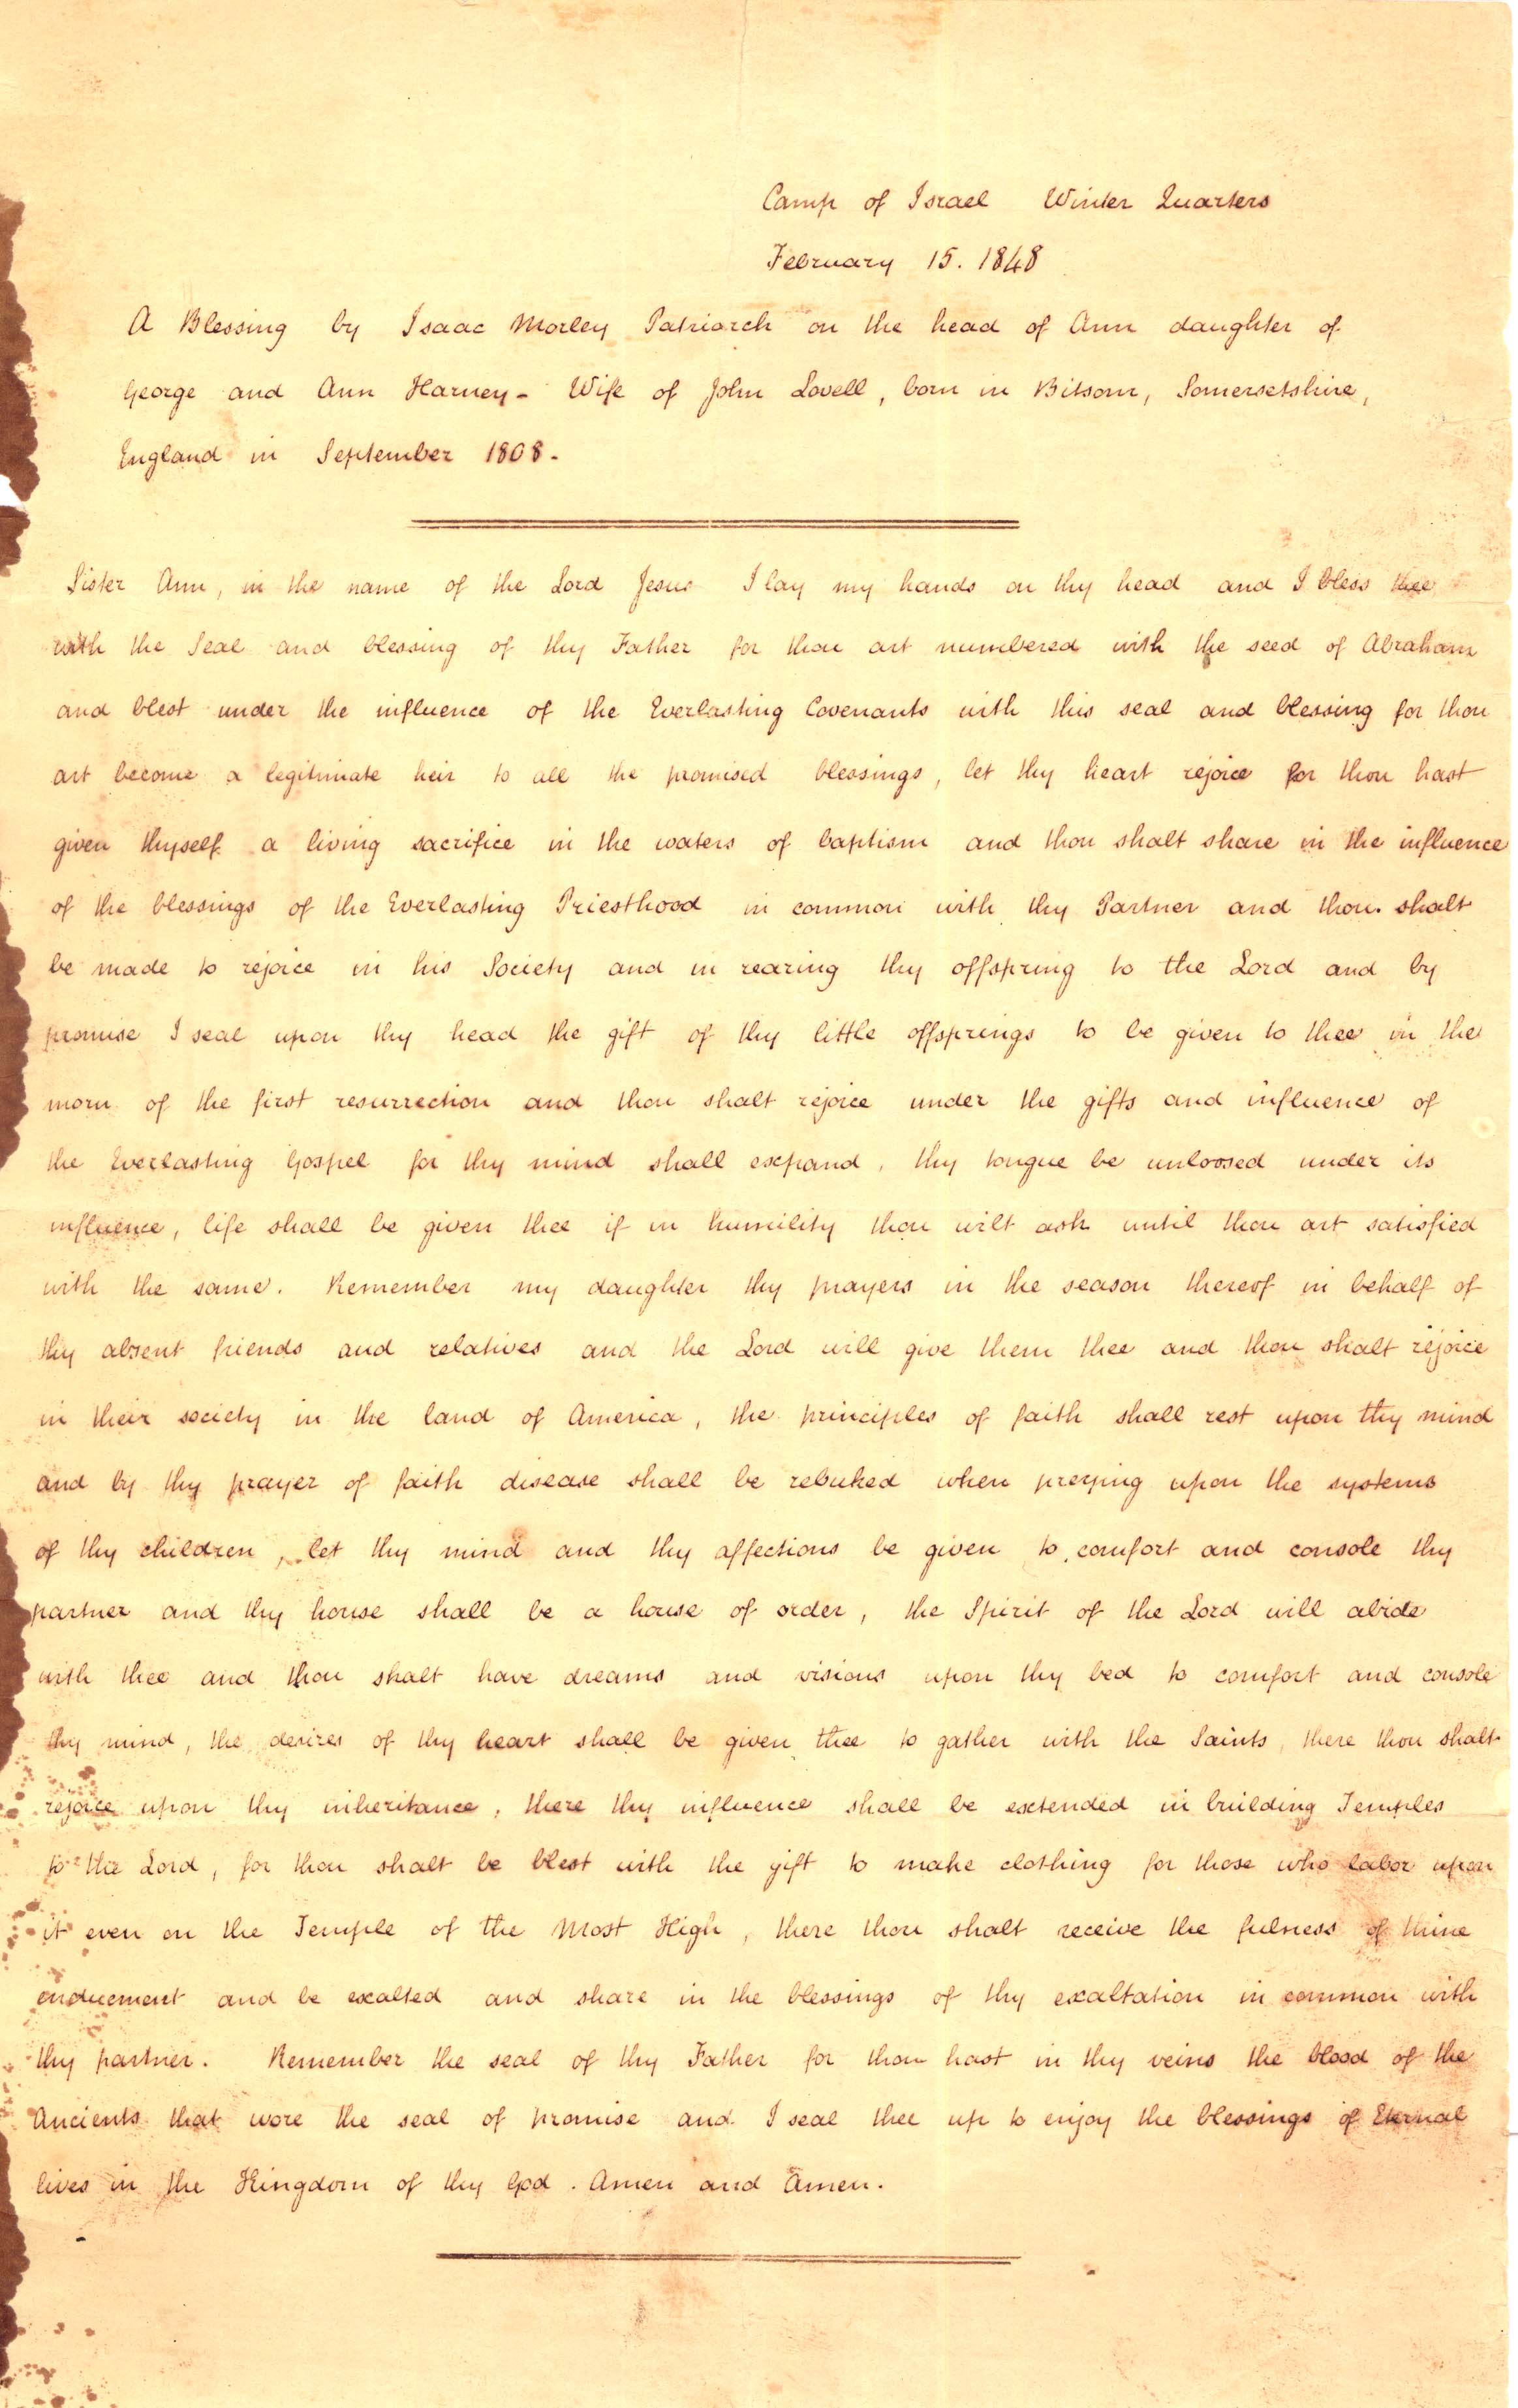 Camp of Israel Winter Quarters
February 15. 1848
A Blessing by Isaac Morley Patriarch on the head of Ann daughter of
George and Ann Harney - Wife of John Lovell, born in Bitsom, Somersetshire,
England in September 1808.
Sister Ann, in the name of the Lord Jesus I lay my hands on thy head and I bless thee
with the Seal and blessing of thy Father for thou art numbered with the seed of Abraham
and blest under the influence of the Everlasting Covenants with this seal and blessing for thou
art become a legitimate heir to all the promised blessings, let thy heart rejoice for thou hast
given thyself a living sacrifice in the waters of baptism and thou shalt share in the influence
of the blessings of the Everlasting Priesthood in common with thy Partner and thou shalt
be made to rejoice in his Society and in rearing thy offspring to the Lord and by
promise I seal upon thy head the gift of thy little offsprings to be given to thee in the
morn of the first resurrection and thou shalt rejoice under the gifts and influence of
the Everlasting Gospel for thy mind shall expand, thy tongue be unloosed under its
influence, life shall be given thee if in humility thou wilt ask until thou art satisfied
with the same. Remember my daughter thy prayers in the season thereof in behalf of
thy absent friends and relatives and the Lord will give them thee and thou shalt rejoice
in their society in the land of America, the principles of faith shall rest upon thy mind
and by thy prayer of faith disease shall be rebuked when preying upon the systems
of thy children, let thy mind and thy affections be given to comfort and console thy
partner and thy house shall be a house of order, the Spirit of the Lord will abide
with thee and thou shalt have dreams and visions upon thy bed to comfort and console
thy mind, the desires of thy heart shall be given thee to gather with the Saints, there thou shalt
rejoice upon thy inheritance, there thy influence shall be extended in building Temples
to the Lord, for thou shalt be blest with the gift to make clothing for those who labor upon
it even on the Temple of the Most High, there thou shalt receive the fulness of thine
enduement and be exalted and share in the blessings of thy exaltation in common with
thy partner. Remember the seal of thy Father for thou hast in thy veins the blood of the
Ancients that wore the seal of promise and I seal thee up to enjoy the blessings of Eternal
lives in the Kingdom of thy God. Amen and Amen.